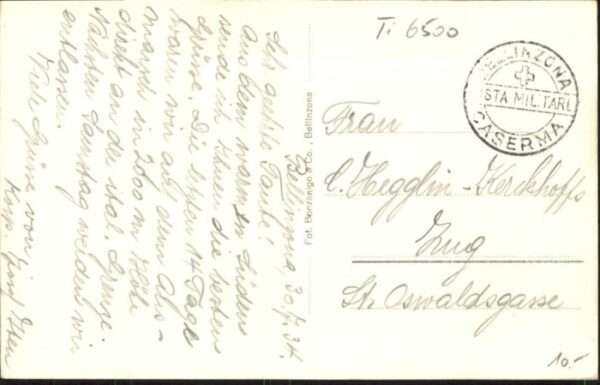 Bellinzona, 30.7.34.
Sehr geehrte Tante!
Aus dem warmen Süden
sende ich Ihnen die besten
Grüsse. Die letzten 14 Tage
waren wir auf dem Aus-
marsch in 2000 m Höhe
direkt an der ital. Grenze.
Nächsten Samstag werden wir
entlassen.
Viele Grüsse von
Korp.
Fot. Borzanigo & Co., Bellinzona
Ti 6500
BELLINZONA
STA MILITARE
CASERMA
Frau
C. Hegglin-Kerckhoffs
Zug
St. Oswaldsgasse
10.-